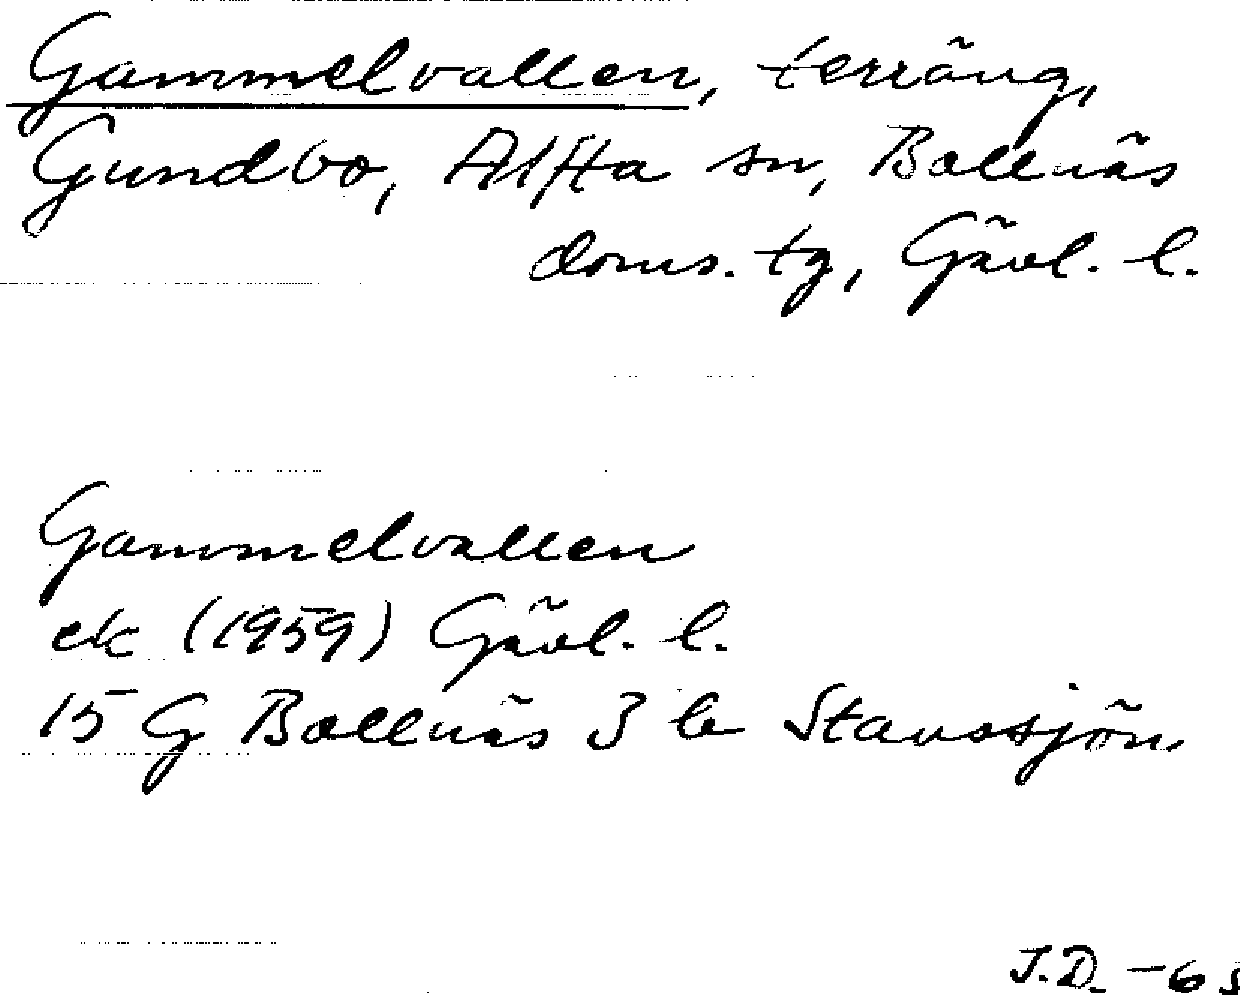 Gammelvallen, terräng,
Gundbo, Alfta sn, Bollnäs
doms. tg, Gävl. l.
Gammelvallen
ek (1959) Gävl. l.
15 G Bollnäs 3 b
J.D. -6